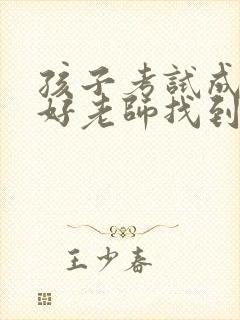 孩子考試成
好老師找到
王少春